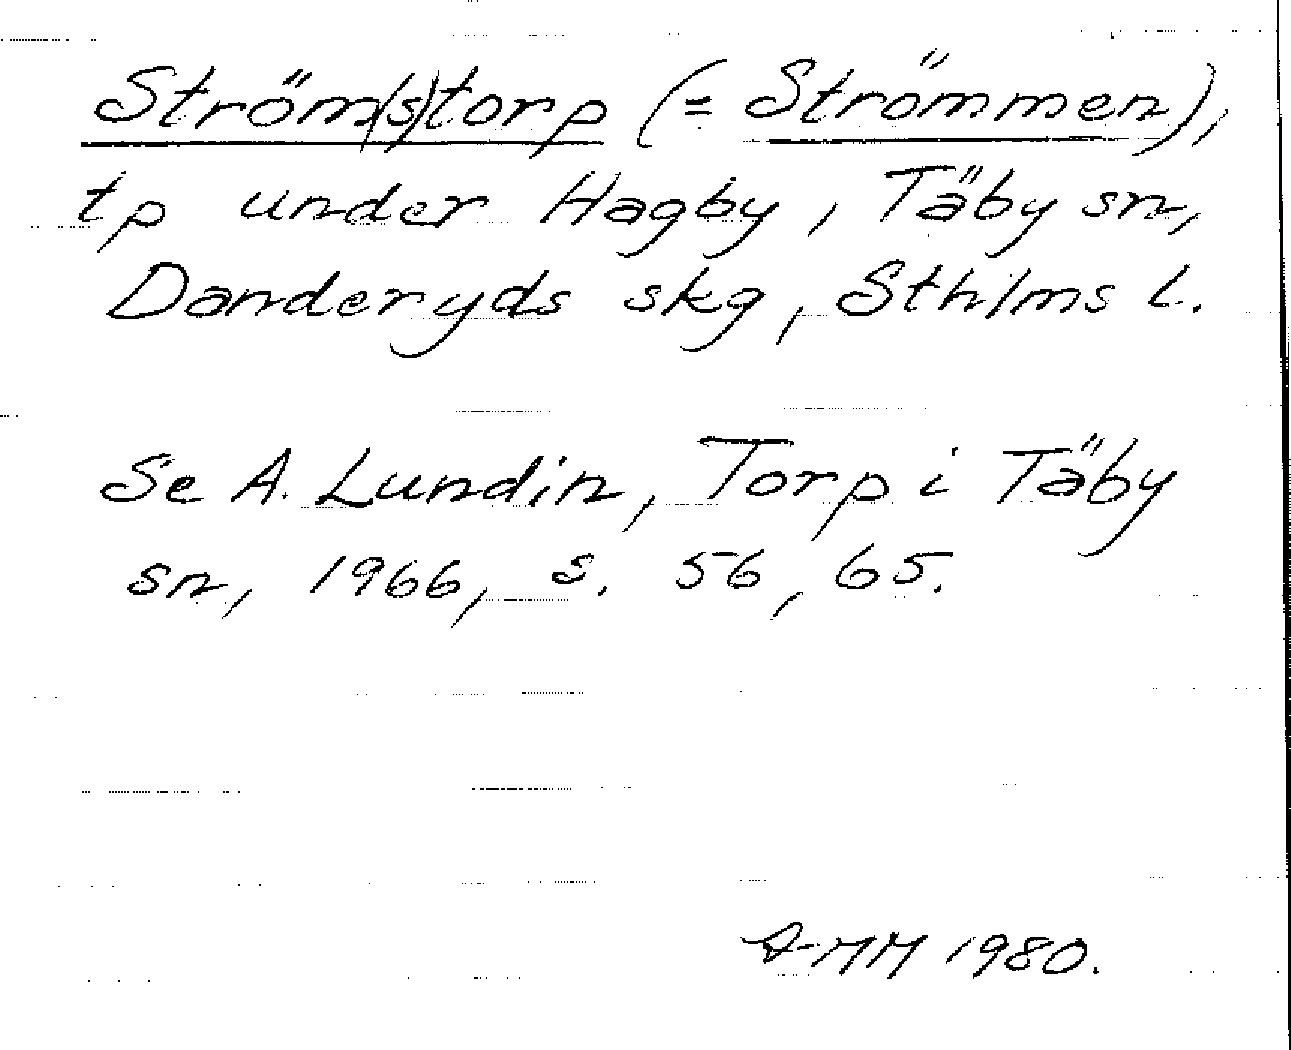 Ström(s)torp (= Strömmen),
tp under Hagby, Täby sn,
Danderyds skg, Sthlms l.
Se A. Lundin, Torp i Täby
sn, 1966, s. 56, 65.
A-MM 1980.